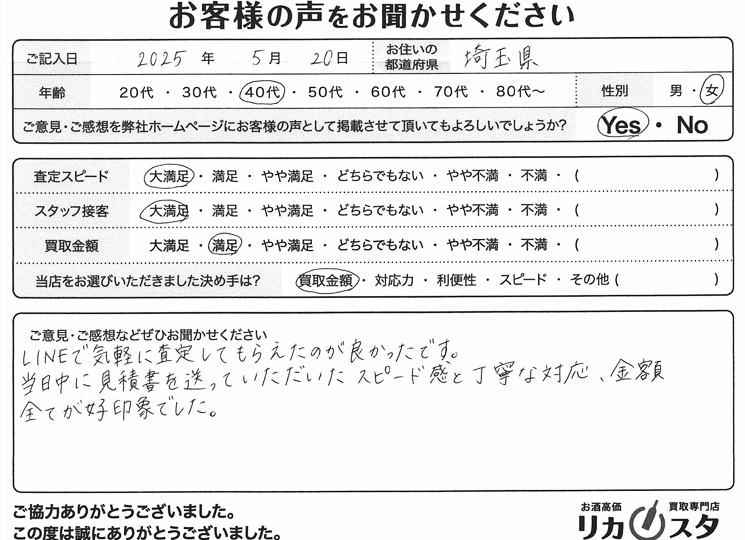 お客様の声をお聞かせください
ご記入日 2025 年 5 月 20 日 お住いの都道府県 埼玉県
年齢 20代 ・ 30代 ・ 40代 ・ 50代 ・ 60代 ・ 70代 ・ 80代〜 性別 男 ・ 女
ご意見・ご感想を弊社ホームページにお客様の声として掲載させて頂いてもよろしいでしょうか? Yes ・ No
査定スピード 大満足 ・ 満足 ・ やや満足 ・ どちらでもない ・ やや不満 ・ 不満 ・ ( )
スタッフ接客 大満足 ・ 満足 ・ やや満足 ・ どちらでもない ・ やや不満 ・ 不満 ・ ( )
買取金額 大満足 ・ 満足 ・ やや満足 ・ どちらでもない ・ やや不満 ・ 不満 ・ ( )
当店をお選びいただきました決め手は? 買取金額 ・ 対応力 ・ 利便性 ・ スピード ・ その他 ( )
ご意見・ご感想などぜひお聞かせください
LINEで気軽に査定してもらえたのが良かったです。
当日中に見積書を送っていただいたスピード感と丁寧な対応、金額
全てが好印象でした。
ご協力ありがとうございました。
この度は誠にありがとうございました。
お酒高価 買取専門店
リカスタ